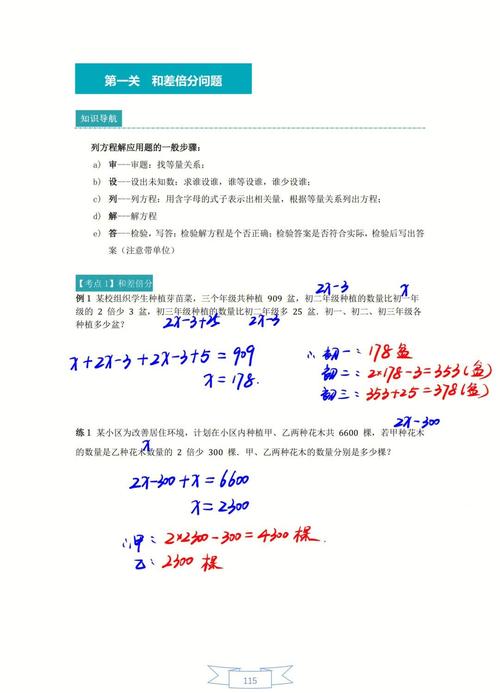 第一关 和差倍分问题
知识导航
列方程解应用题的一般步骤：
a) 审---审题：找等量关系；
b) 设---设出未知数：求谁设谁，谁等设谁，谁少设谁；
c) 列---列方程：用含字母的式子表示出相关量，根据等量关系列出方程；
d) 解---解方程
e) 答---检验，写答：检验解方程是个否正确；检验答案是否符合实际，检验后写出答
案（注意带单位）
【考点 1】和差倍分
2x-3 x
例 1 某校组织学生种植芽苗菜，三个年级共种植 909 盆，初二年级种植的数量比初一年
级的 2 倍少 3 盆，初三年级种植的数量比初二年级多 25 盆．初一、初二、初三年级各
2x-3+25 2x-3
种植多少盆？
x+2x-3+2x-3+5=909
x=178.
∴初一：178盆
初二：2×178-3=353(盆)
初三：353+25=378(盆)
2x-300
练 1 某小区为改善居住环境，计划在小区内种植甲、乙两种花木共 6600 棵，若甲种花木
x
的数量是乙种花木数量的 2 倍少 300 棵．甲、乙两种花木的数量分别是多少棵？
2x-300+x=6600
x=2300
∴甲：2×2300-300=4300棵.
乙：2300棵
115